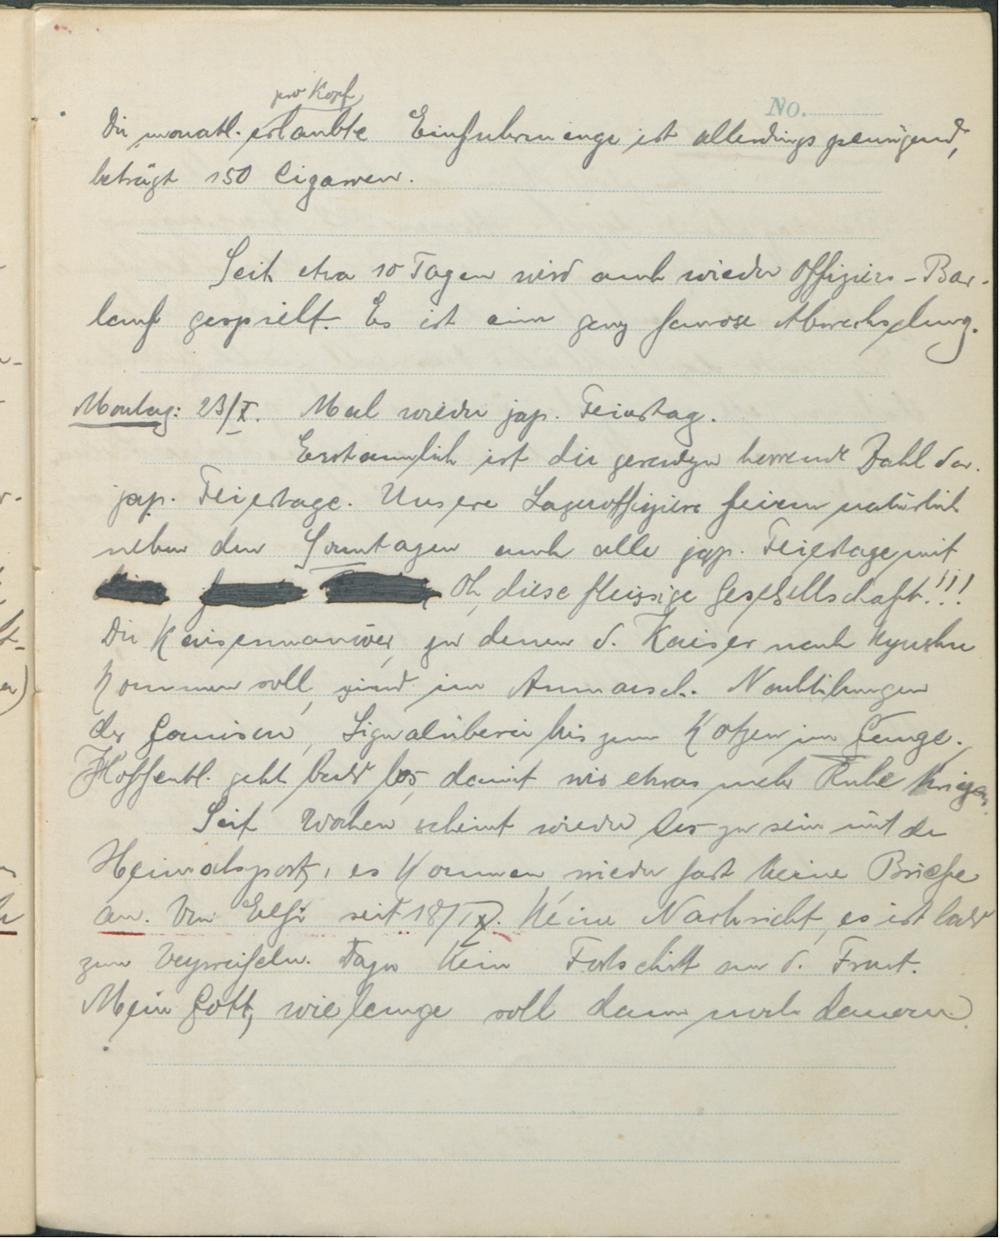 No.
pro Kopf
Die monatl. erlaubte Einfuhrmenge ist allerdings genügend,
beträgt 150 Cigarren.
Seit etwa 10 Tagen wird auch wieder Offiziers-Bar-
lauf gespielt. Es ist eine ganz famose Abwechslung.
Montag: 23/X. Mal wieder jap. Feiertag.
Erstaunlich ist die geradezu horrende Zahl der
jap. Feiertage. Unsere Lageroffiziere feiern natürlich
neben den Sonntagen auch alle jap. Feiertage mit
Oh, diese fleissige Gesellschaft!!!
Die Kaisermanöver, zu denen d. Kaiser nach Kyushu
kommen soll, sind im Anmarsch. Nachtübungen
der Garnison, Signalüberei bis zum Kotzen im Gange.
Hoffentl. geht bald los, damit wir etwas mehr Ruhe kriegen.
Seit Wochen scheint wieder was zu sein mit der
Heimatspost, es kommen wieder fast keine Briefe
an. Von seit 18/IX. keine Nachricht, es ist bald
zum Verzweifeln. Dazu kein Fortschritt an d. Front.
Mein Gott, wie lange soll denn noch dauern